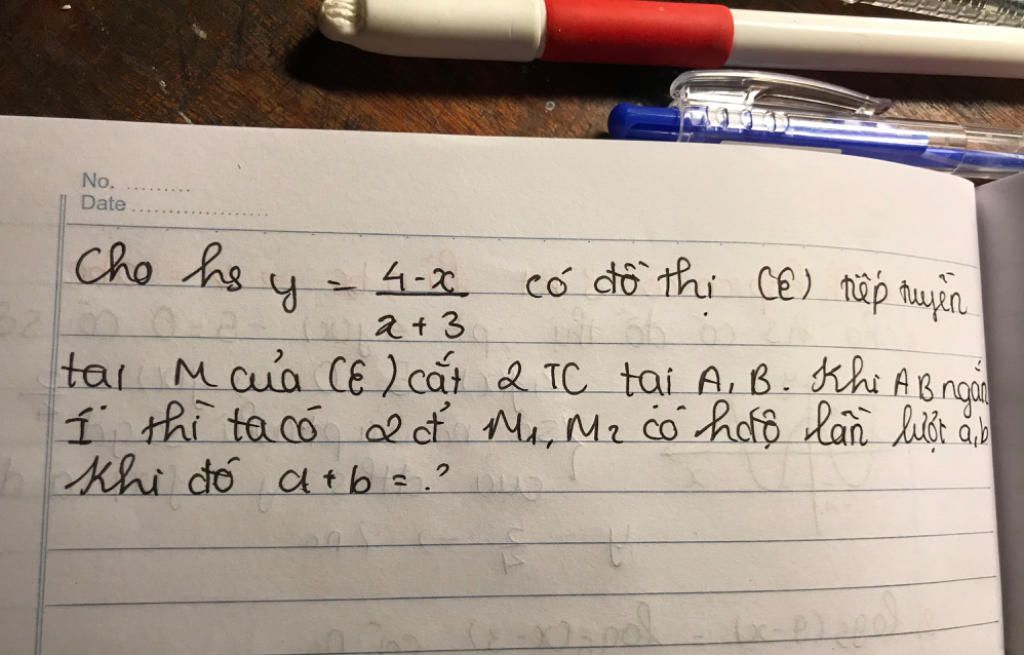 No. .........
Date ....................
Cho hs y = \frac{4-x}{x+3} có đồ thị (C) tiếp tuyến
tại M của (C) cắt 2 TC tại A, B. Khi AB ngắn
I thì ta có 2 đ' M1, M2 có hđộ lần lượt a, b
Khi đó a + b = ?